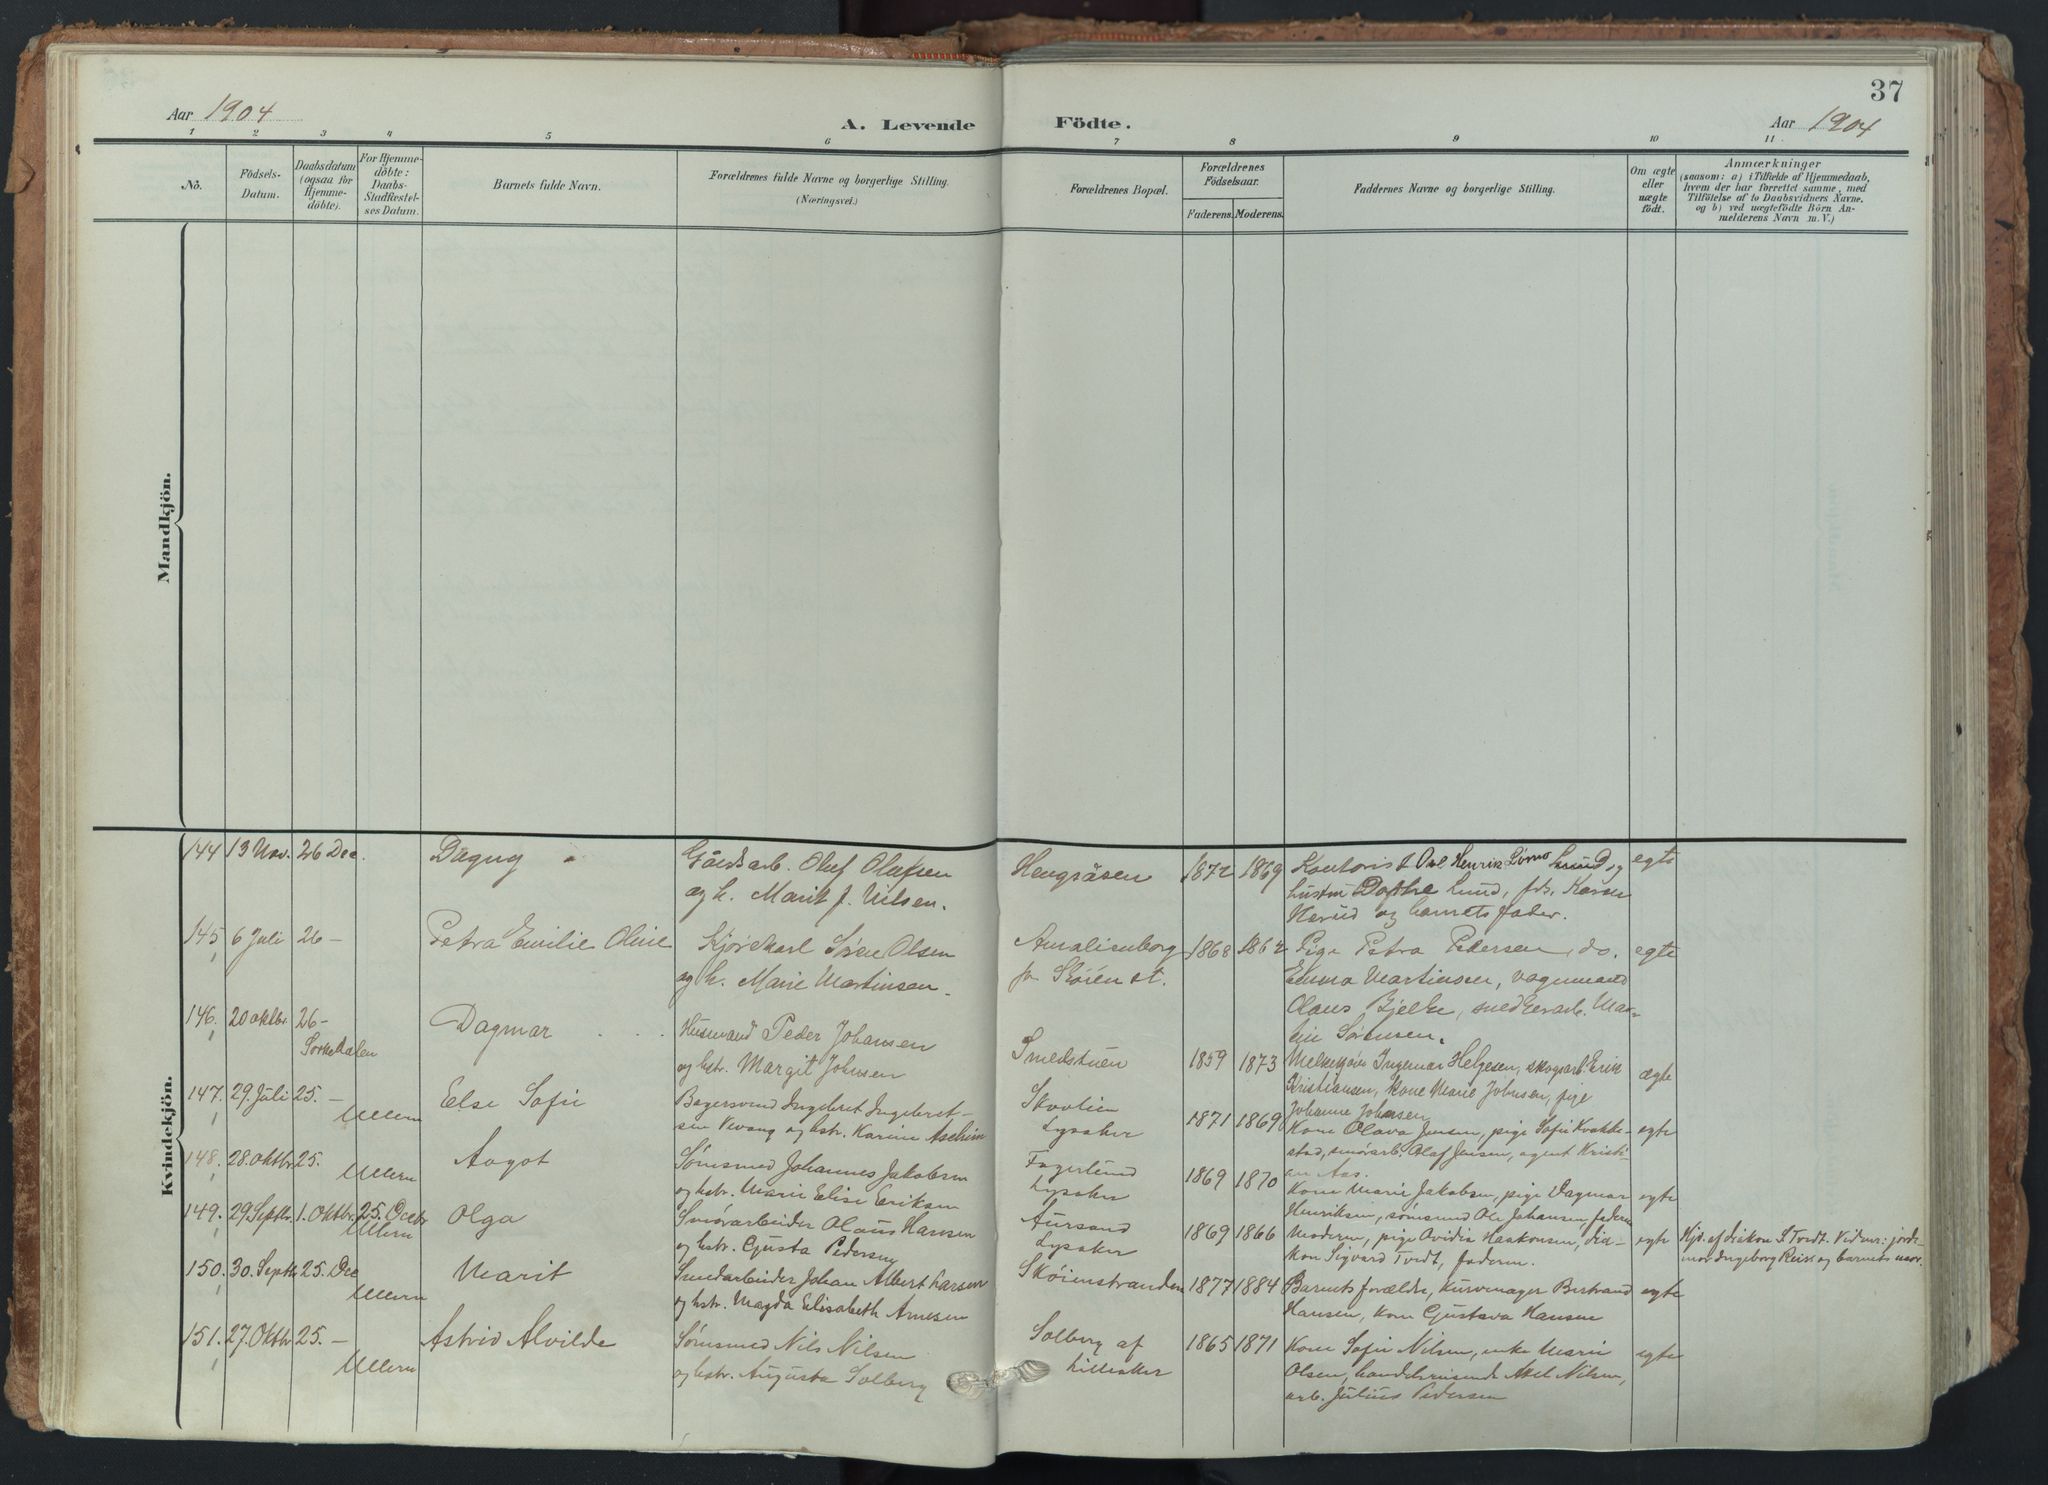 37
Aar 1904
A. Levende Födte.
Aar 1904
1 2 3 4 5 6 7 8 9 10 11
No.
Födsels-
Datum.
Daabsdatum
(ogsaa for
Hjemme-
döbte).
For Hjemme-
döbte:
Daabs-
Stadfæstel-
ses Datum.
Barnets fulde Navn.
Forældrenes fulde Navne og borgerlige Stilling.
(Næringsvei.)
Forældrenes Bopæl.
Forældrenes
Födselsaar.
Faderens. Moderens.
Faddernes Navne og borgerlige Stilling.
Om ægte
eller
uægte
födt.
Anmærkninger
(saasom: a) i Tilfælde af Hjemmedaab,
hvem der har forrettet samme, med
Tilföielse af to Daabsvidners Navne.
og b) ved uægtefödte Börn An-
melderens Navn m. V.)
Mandkjön.
Kvindekjön.
144 13 Nov. 26 Dec. Dagny
Gårdsarb. Oluf Olafsen
og h. Marit J. Nilsen.
Hengsåsen 1872 1869
Kontorist Ove Henrik Lund og
hustru Lund, frk. Karen
og barnets fader.
egte
145 6 Juli 26 – Petra Emilie Oline
Kjørekarl Søren Olsen
og h. Marie Martinsen.
Amalienborg
pr Skøien st.
1868 1862
Pige Petra Pedersen, do.
Emma Martinsen, vognmand
Olaus Bjelke, snedkerarb. Mar-
Sørensen.
egte
146. 20 oktbr 26 –
Sørkedalen
Dagmar
Husmand Peder Johansen
og hstr. Margit Johnsen
Smedstuen 1859 1873
Ingemar Helgesen, skogsarb. Erik
Kristiansen, kone Marie Johnsen, pige
Johanne Johansen
ægte
147. 29 Juli 25. –
Ullern
Else Sofie
Bagersvend Ingebret Ingebret-
sen Vevang og hstr. Karine Aschim
Skovlien
Lysaker
1871 1869
Kone Olava Jensen, pige Sofie Kvakke-
stad, smørarb. Olaf Jensen, agent Kristi-
an Aas.
egte
148. 28. oktbr 25.
Ullern
Aagot
Sømsmed Johannes Jakobsen
og hstr. Marie Elise Eriksen
Fagerlund
Lysaker
1869 1870
Kone Marie Jakobsen, pige Dagmar
Henriksen, sømsmed Ole Johansen, faderen
egte
149. 29 Septbr. 1. Oktbr. 25. Decbr
Ullern
Olga
Smørarbeider Olaus Hansen
og hstr. Gjusta Pedersen
Aursund
Lysaker
1869 1866
Moderen, pige Ovidia Haakonsen, dia-
kon Sigvard Tvedt, faderen.
egte
Hjd. af diakon S. Tvedt. Vidner: jorde-
mor Ingeborg Reisx og barnets mor.
150. 30. Septbr 25. Dec
Ullern
Marit
Smedarbeider Johan Albert Larsen
og hstr. Magda Elisabeth Arnesen
Skøienstranden 1877 1884
Barnets forældre, kurvmager Bertrand
Hansen, kone Gjustava Hansen
egte
151. 27. Oktbr 25. –
Ullern
Astrid Alvilde
Sømsmed Nils Nilsen
og hstr. Augusta Solberg
Solberg af
Lilleaker
1865 1871
Kone Sofie Nilsen, enke Marie
Olsen, handelsreisende Axel Nilsen,
arb. Julius Pedersen
egte